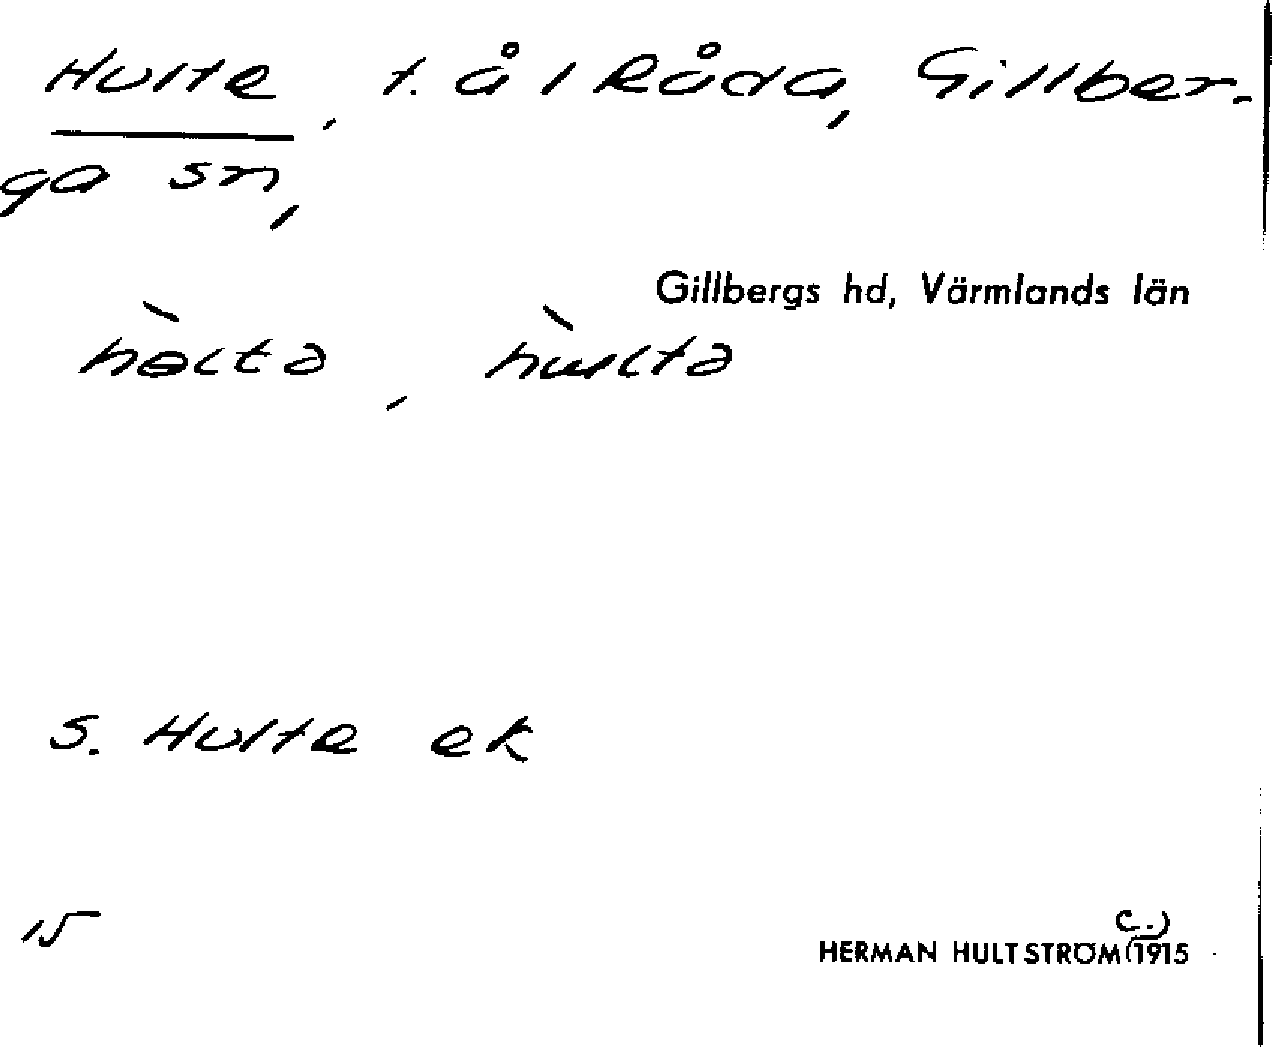 Hulte, t. å l Råda, Gillber-
ga sn,
Gillbergs hd, Värmlands län
hɵ̀ltə, hùltə
S. Hulte ek
15
HERMAN HULTSTRÖM (C.) 1915